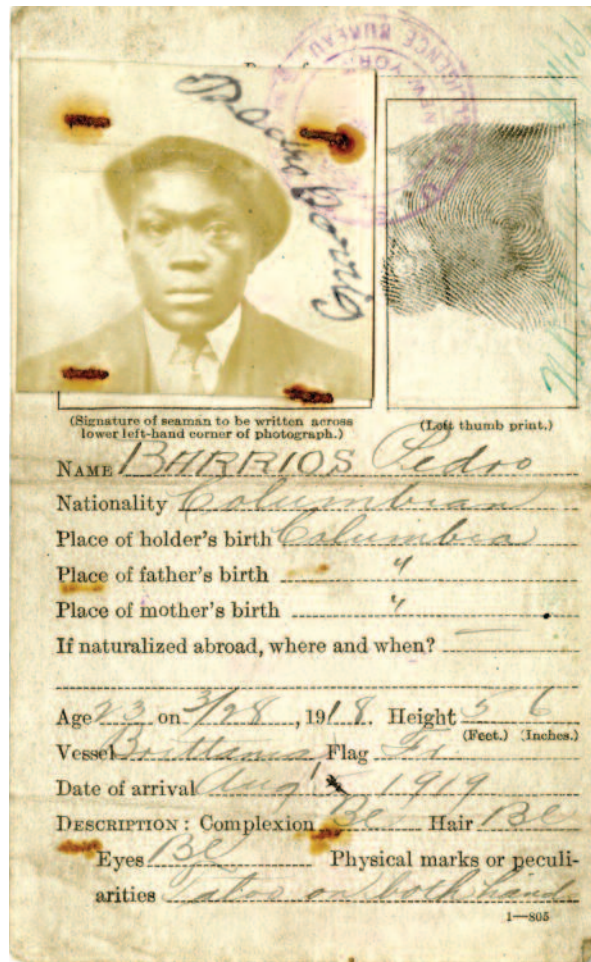 Pedro Barrios
NEW YORK
BUREAU
(Signature of seaman to be written across
lower left-hand corner of photograph.)
(Left thumb print.)
NAME BARRIOS Pedro
Nationality Columbian
Place of holder's birth Columbia
Place of father's birth "
Place of mother's birth "
If naturalized abroad, where and when? —
Age 23 on 3/28, 1918. Height 5 6
(Feet.) (Inches.)
Vessel Brittania Flag Fr.
Date of arrival Aug 1 1919
DESCRIPTION: Complexion Bl Hair Bl
Eyes Bl Physical marks or peculi-
arities tatoo on both hand
1—805